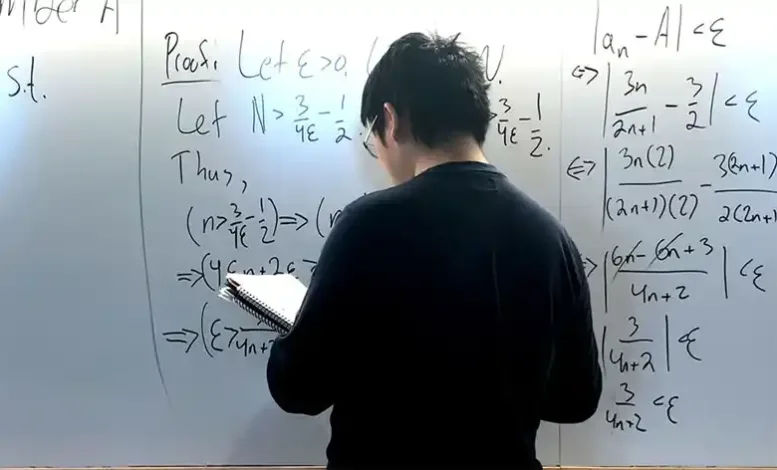 s.t.
Proof: Let ε>0.
Let N > 3/4ε - 1/2
3/4ε - 1/2.
Thus,
(n > 3/4ε - 1/2) => (
=> (4εn+2ε
=> (ε >
|aₙ - A| < ε
<=> |3n/2n+1 - 3/2| < ε
<=> |3n(2)/(2n+1)(2) - 3(2n+1)/2(2n+1)
|6n - 6n + 3/4n+2| < ε
|3/4n+2| < ε
3/4n+2 < ε